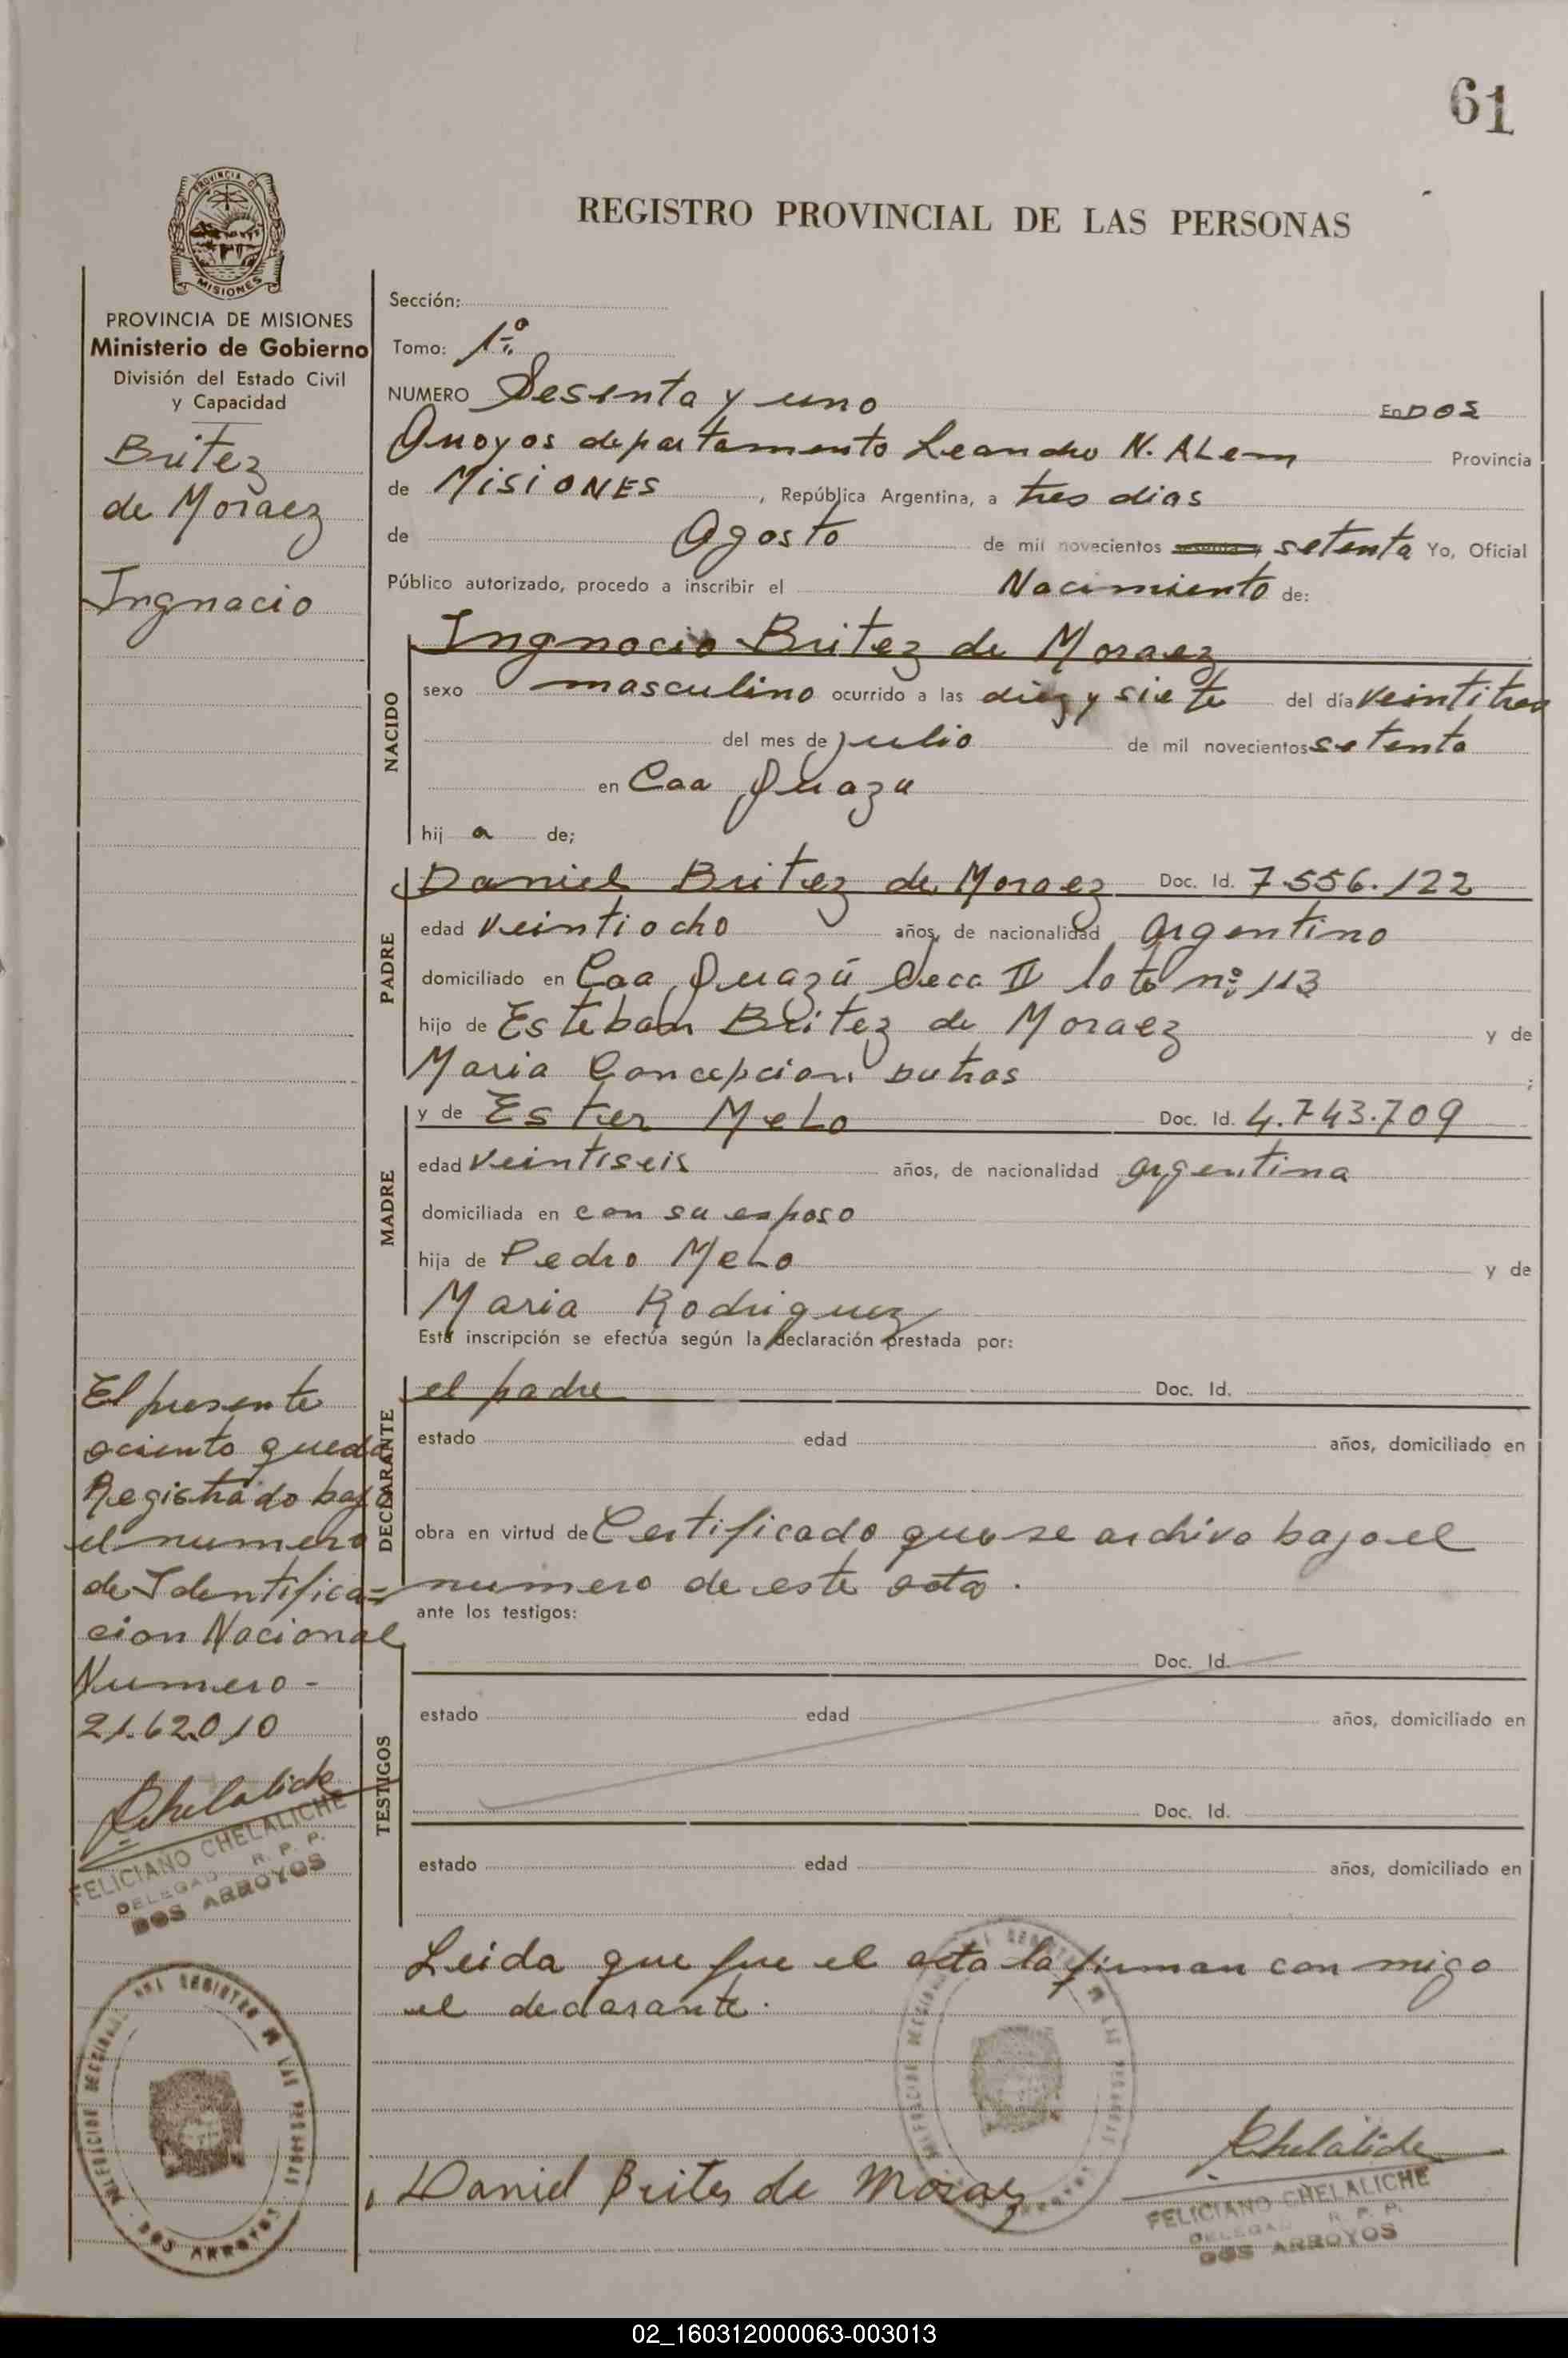 61
REGISTRO PROVINCIAL DE LAS PERSONAS
PROVINCIA DE MISIONES
Ministerio de Gobierno
División del Estado Civil
y Capacidad
Britez
de Moraez
Ingnacio
Sección:
Tomo: 1º
NUMERO Sesenta y uno En DOS
Arroyos departamento Leandro N. ALem Provincia
de MISIONES, República Argentina, a tres dias
de Agosto de mil novecientos setenta Yo, Oficial
Público autorizado, procedo a inscribir el Nacimiento de:
NACIDO
Ingnacio Britez de Moraez
sexo masculino ocurrido a las diez y siete del día veintitres
del mes de julio de mil novecientos setenta
en Caa Guazu
hij a de;
PADRE
Daniel Britez de Moraez Doc. Id. 7.556.122
edad veintiocho años, de nacionalidad argentino
domiciliado en Caa Guazú Secc IV lote nº 113
hijo de Esteban Britez de Moraez y de
Maria Concepcion Dutras ;
MADRE
y de Ester MeLo Doc. Id. 4.743.709
edad veintiseis años, de nacionalidad argentina
domiciliada en con su esposo
hija de Pedro MeLo y de
Maria Rodriguez
Esta inscripción se efectúa según la declaración prestada por:
DECLARANTE
el padre Doc. Id.
estado edad años, domiciliado en
obra en virtud de Certificado que se archiva bajo el
numero de este acta.
ante los testigos:
TESTIGOS
Doc. Id.
estado edad años, domiciliado en
Doc. Id.
estado edad años, domiciliado en
Leida que fue el acta la firman con migo
el declarante.
Daniel Brites de Moraez
Chelaliche
FELICIANO CHELALICHE
DELEGADO R. P. P.
DOS ARROYOS
El presente
aciento queda
Registrado bajo
el numero
de Identifica=
cion Nacional
Numero-
21.62.010
Chelaliche
FELICIANO CHELALICHE
DELEGADO R. P. P.
DOS ARROYOS
DOS ARROYOS
02_160312000063-003013